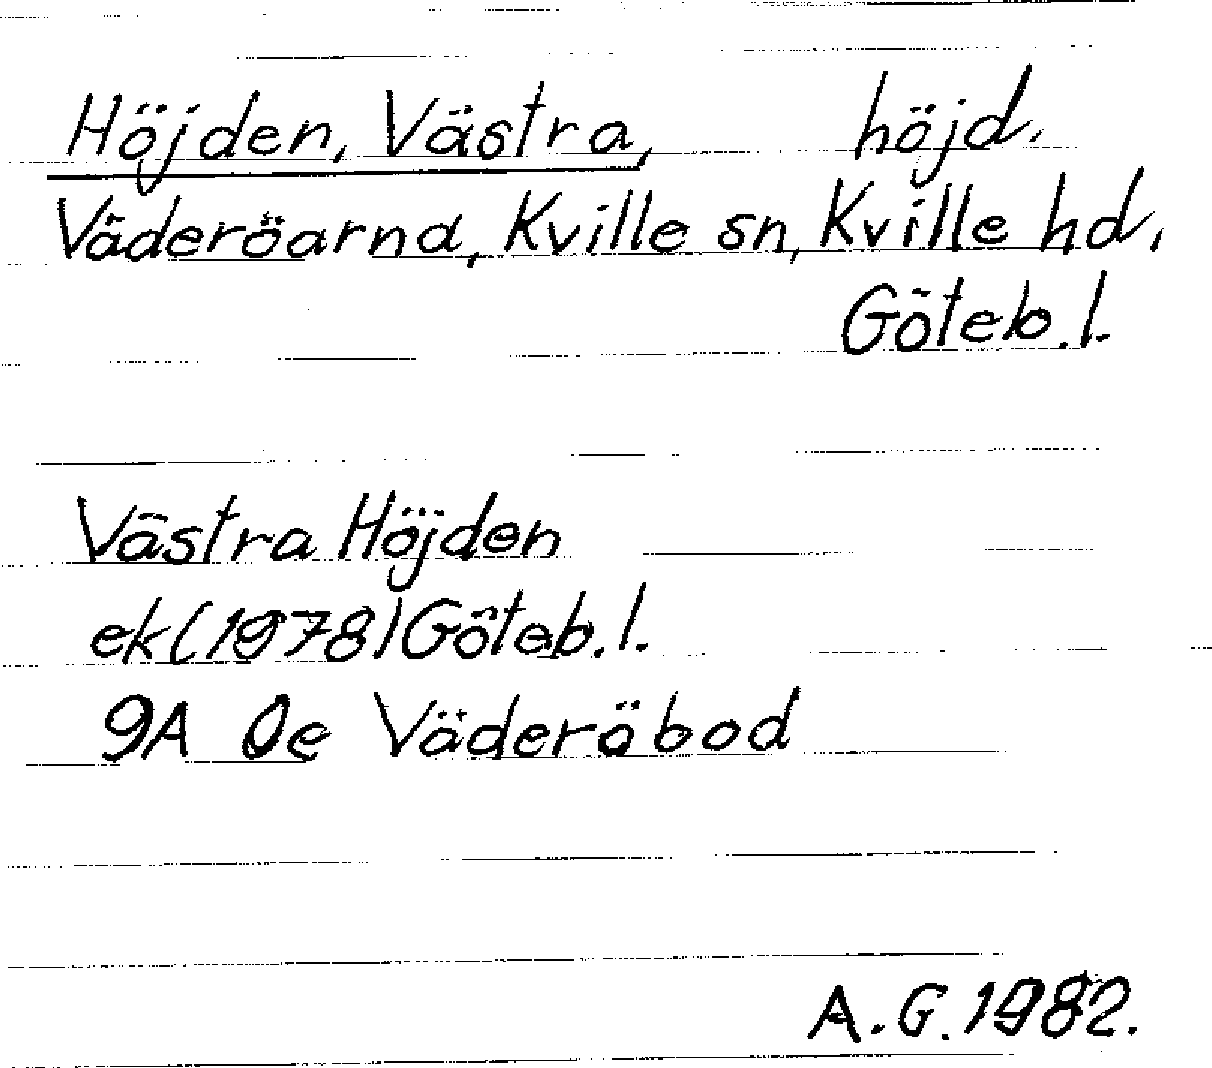 Höjden, Västra, höjd.
Väderöarna, Kville sn, Kville hd,
Göteb. l.
Västra Höjden
ek (1978) Göteb. l.
9A 0e Väderöbod
A. G. 1982.